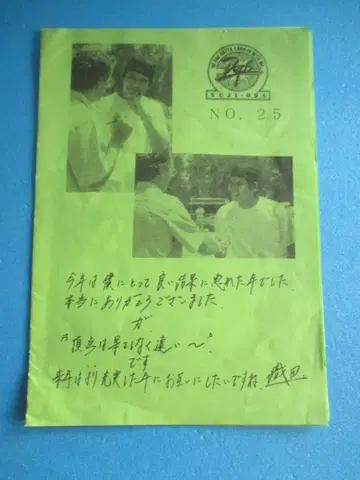 YUJI・ODA
NO. 25
今年は僕にとって良い結果に恵れた年でした
本当にありがとうございました
が、
"頂点は果てしなく遠い〜"
です
来年はより充実した年にお互いにしたいですね 織田